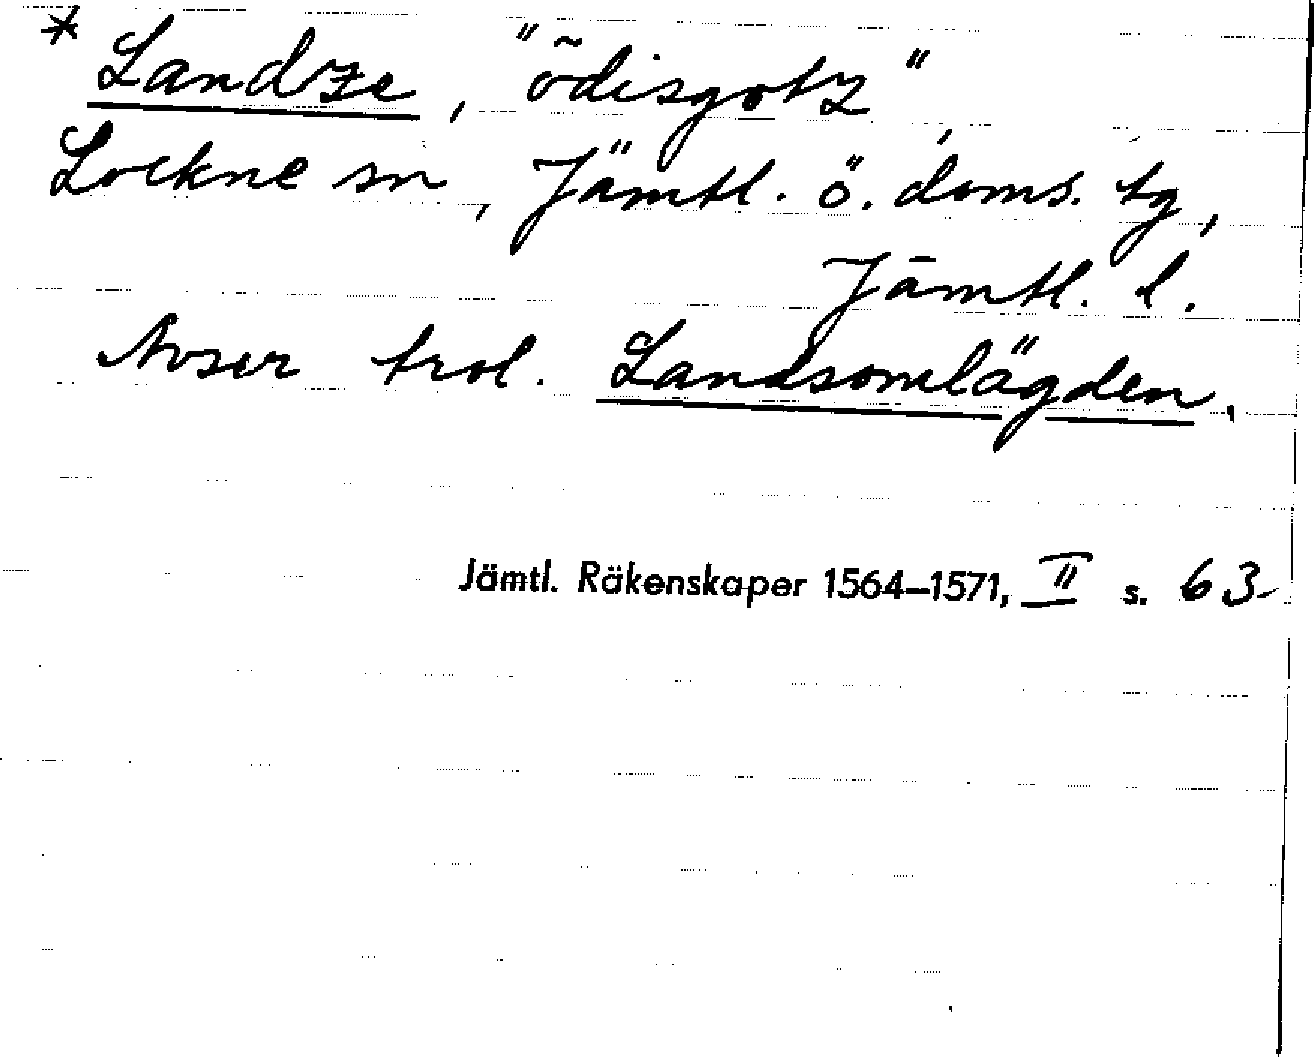 * Landze, "ödisgotz"
Lockne sn, Jämtl. ö. doms. tg,
Jämtl. l.
Avser trol. Landsomlägden.
Jämtl. Räkenskaper 1564–1571, II s. 63